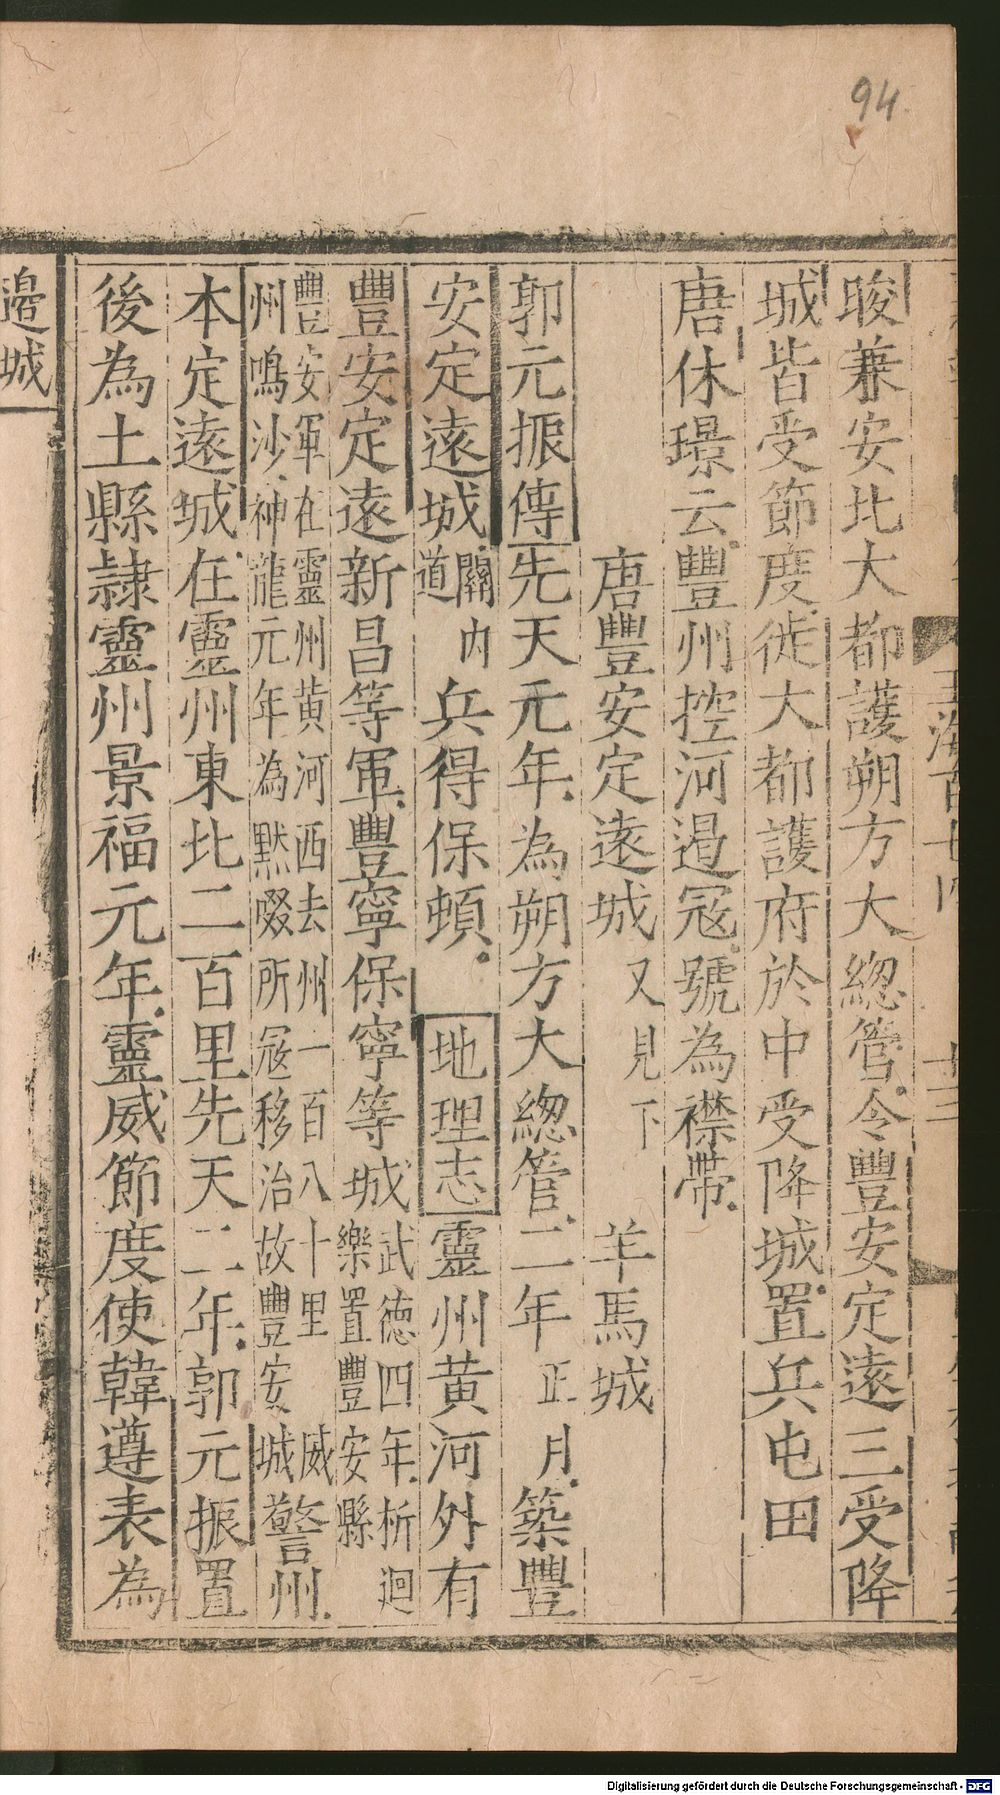 94
畯兼安北大都護朔方大總管令豐安定遠三受降
城皆受節度徙大都護府於中受降城置兵屯田
唐休璟云豐州控河遏寇號為襟帶
唐豐安定遠城 又見下 羊馬城
郭元振傳先天元年為朔方大總管二年正月築豐
安定遠城關內道兵得保頓 地理志靈州黃河外有
豐安定遠新昌等軍豐寧保寧等城武德四年析迴樂置豐安縣
豐安軍在靈州黃河西去州一百八十里
州鳴沙神龍元年為默啜所寇移治故豐安城 威警州
本定遠城在靈州東北二百里先天二年郭元振置
後為土縣隷靈州景福元年靈威節度使韓遵表為
邊城
Digitalisierung gefördert durch die Deutsche Forschungsgemeinschaft - DFG